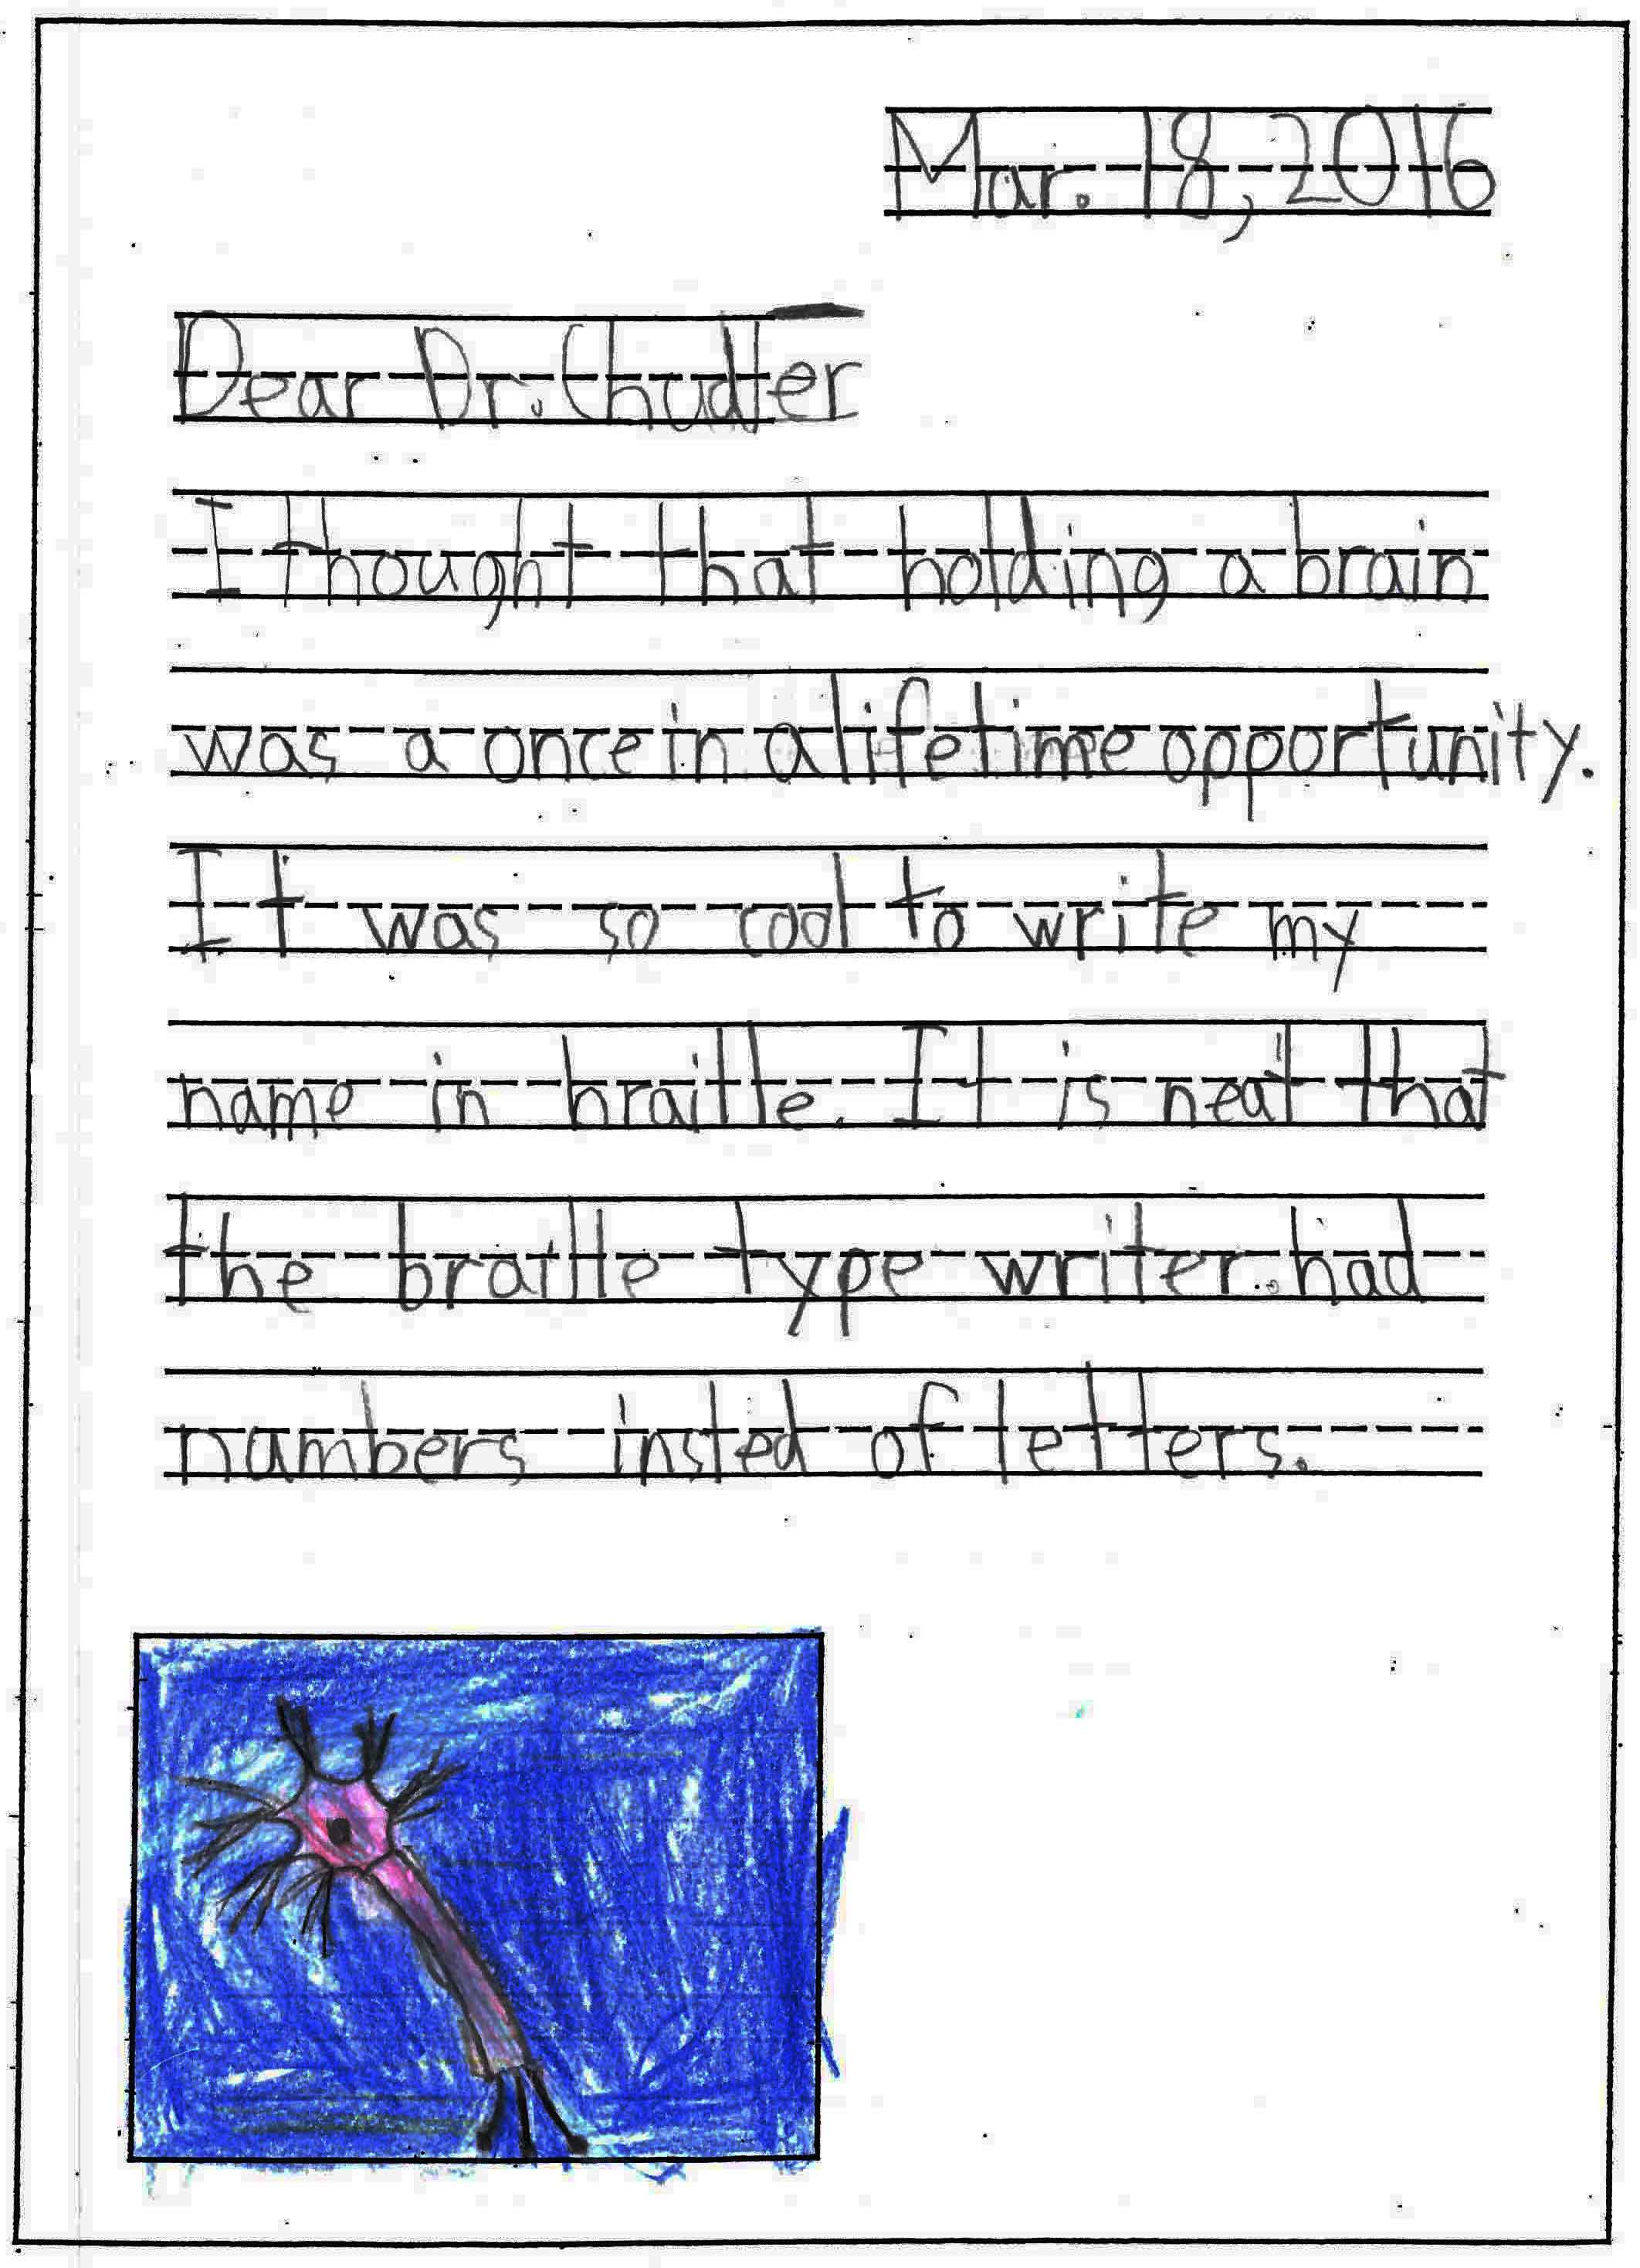 Mar. 18, 2016
Dear Dr. Chudler
I thought that holding a brain
was a once in a lifetime opportunity.
It was so cool to write my
name in braille. It is neat that
the braille type writer had
numbers insted of letters.